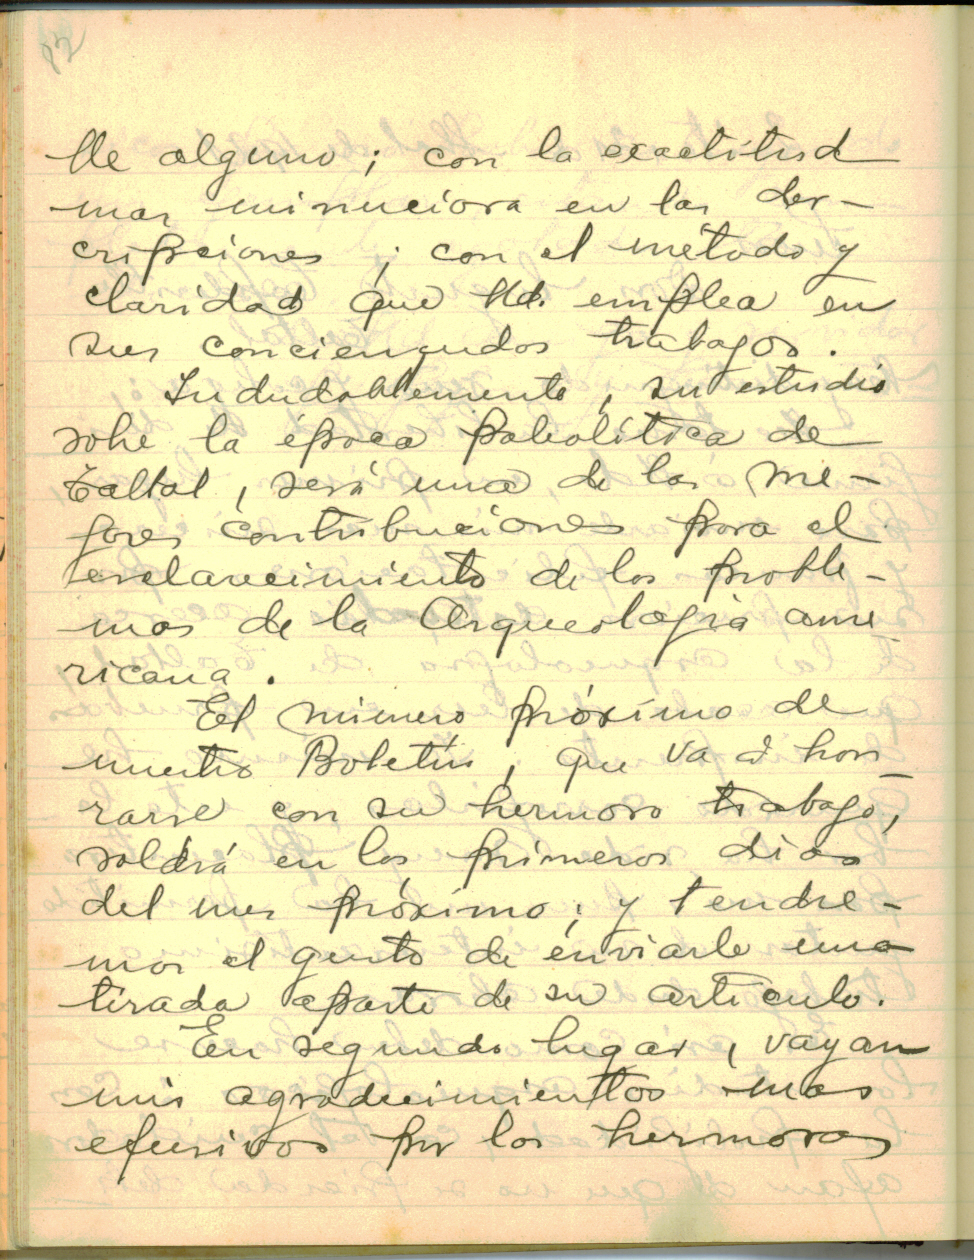 92
lle alguno; con la exactitud
mas minuciosa en las des-
cripciones; con el método y
claridad que Ud. emplea en
sus concienzudos trabajos.
Indudablemente, su estudio
sobre la época paleolítica de
Taltal, será una de las me-
jores contribuciones para el
esclarecimiento de los proble-
mas de la Arqueología ame-
ricana.
El número próximo de
nuestro Boletín, que va á hon-
rarse con su hermoso trabajo,
saldrá en los primeros dias
del mes próximo; y tendre-
mos el gusto de enviarle una
tirada aparte de su artículo.
En segundo lugar, vayan
mis agradecimientos mas
efusivos por los hermosos